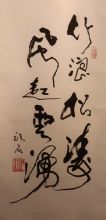 竹浪松濤
風起雲湧